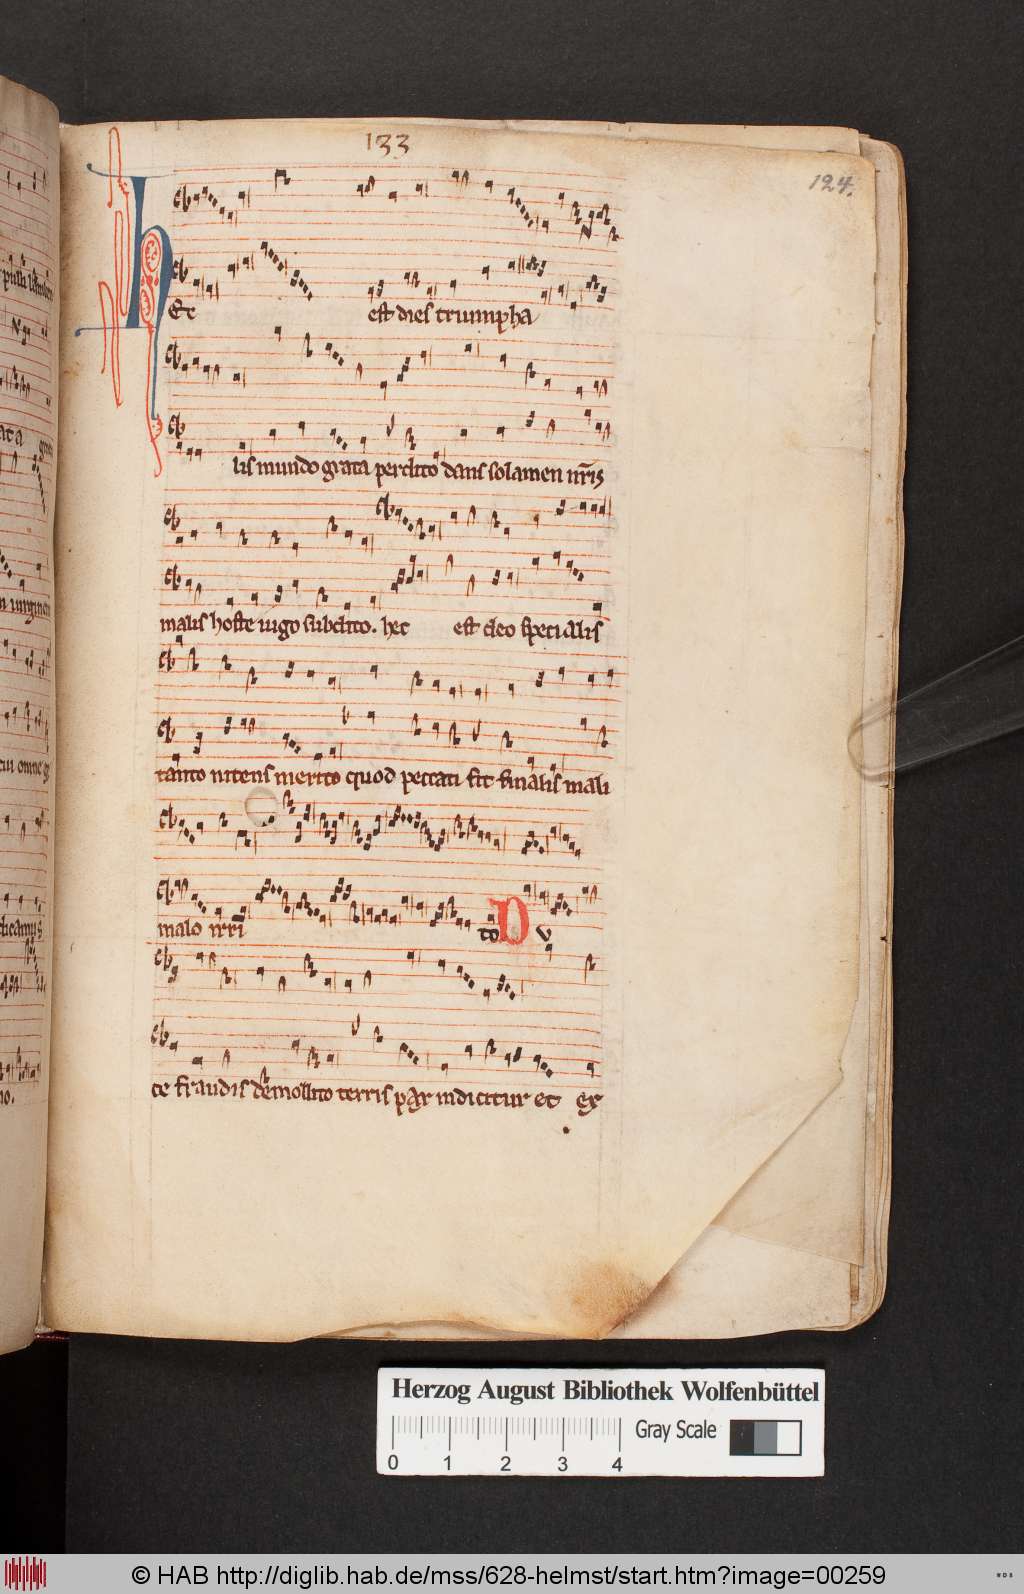 133
124.
hEc est dies triumpha
lis mundo grata perdito dans solamen nr̄is
malis hoste iugo subdito. hec est deo specialis
tanto nitens merito quod peccati fit finalis mali
malo irri to Du
ce fraudis demollito terris pax indicitur et ex
Herzog August Bibliothek Wolfenbüttel
Gray Scale
0 1 2 3 4
© HAB http://diglib.hab.de/mss/628-helmst/start.htm?image=00259